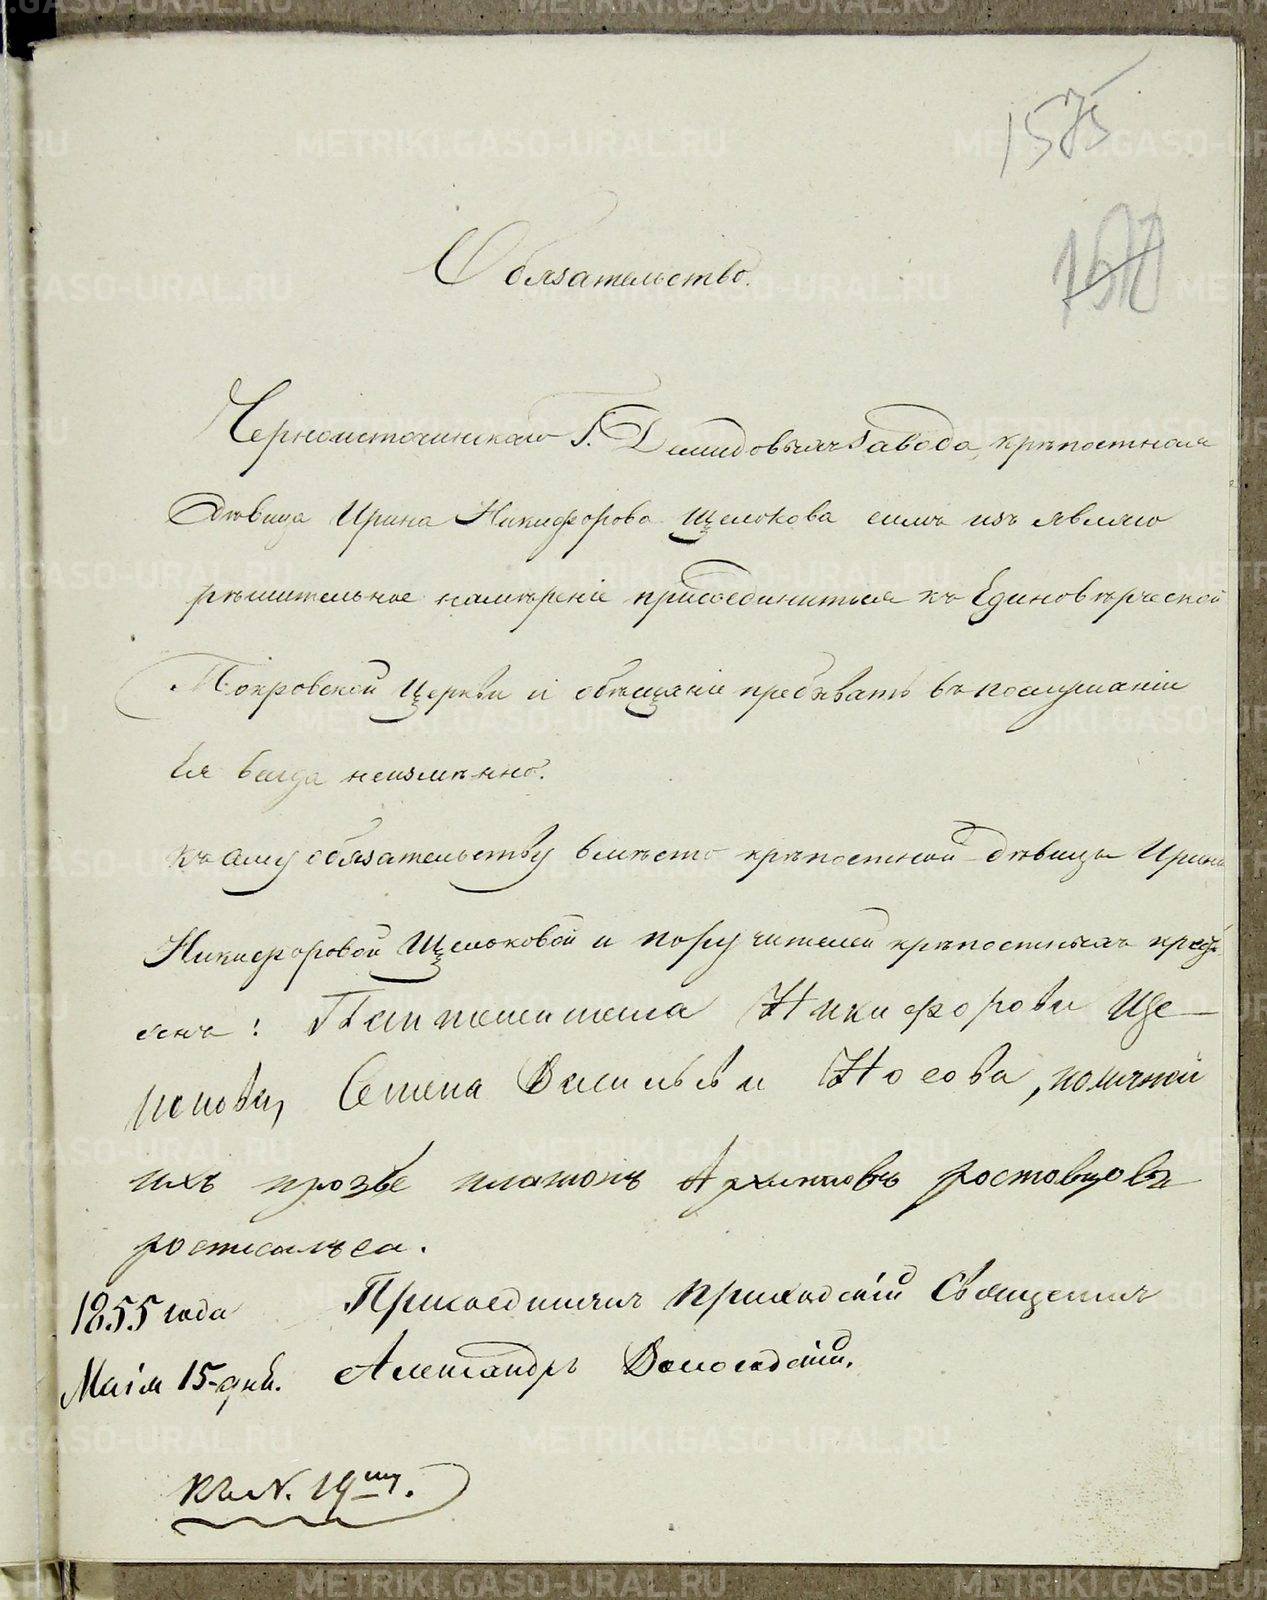 1575
Обязательство.
Черноисточинскаго Г. Демидовыхъ завода, крѣпостная
дѣвица Ирина Никифорова Щелокова симъ изъявляю
рѣшительное намѣреніе присоединиться къ Единовѣрческой
Покровской Церкви и обѣщаніе пребывать въ послушаніи
Ея всегда неизмѣнно.
къ сему обязательству вмѣсто крѣпостной дѣвицы Ирины
Никифоровой Щелоковой и поручителей крѣпостныхъ
Никифорова Ще-
локова, Семена Васильева Носова, по личной
ихъ прозбе платонъ Архиповъ ростовцовъ
росписался.
1855 года Присоединилъ Приходскій Священникъ
Маія 15 дня. Александръ Вологодскій.
Къ N. 19му.